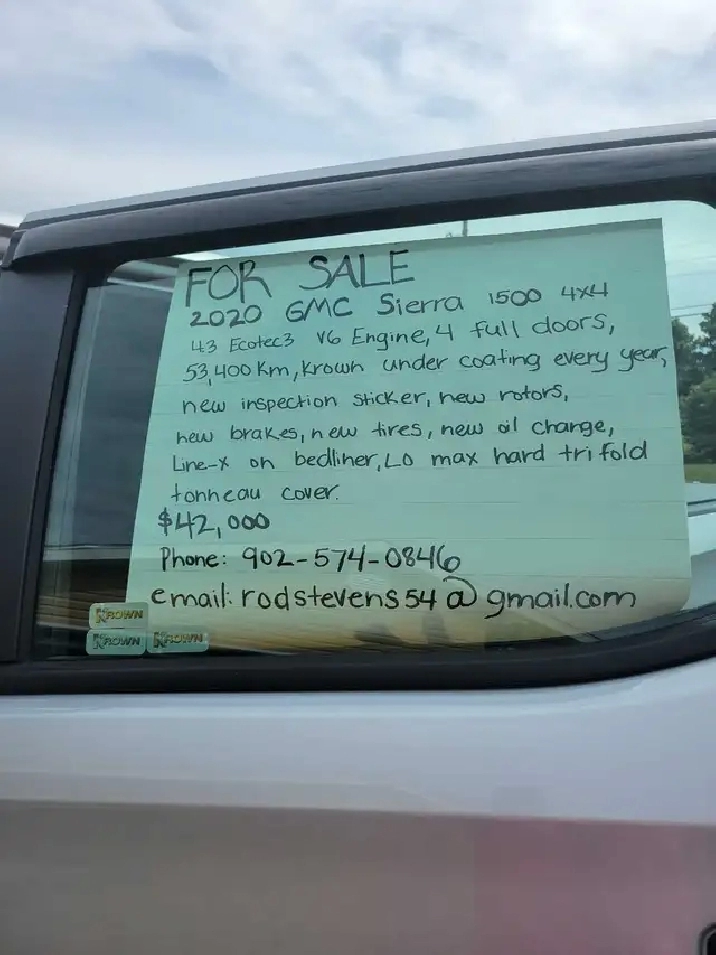 FOR SALE
2020 GMC Sierra 1500 4x4
4.3 Ecotec3 V6 Engine, 4 full doors,
53,400 Km, Krown under coating every year,
new inspection sticker, new rotors,
new brakes, new tires, new oil change,
Line-X on bedliner, Lo max hard tri fold
tonneau cover.
$42,000
Phone: 902-574-0846
email: rodstevens54@gmail.com
KROWN
KROWN KROWN